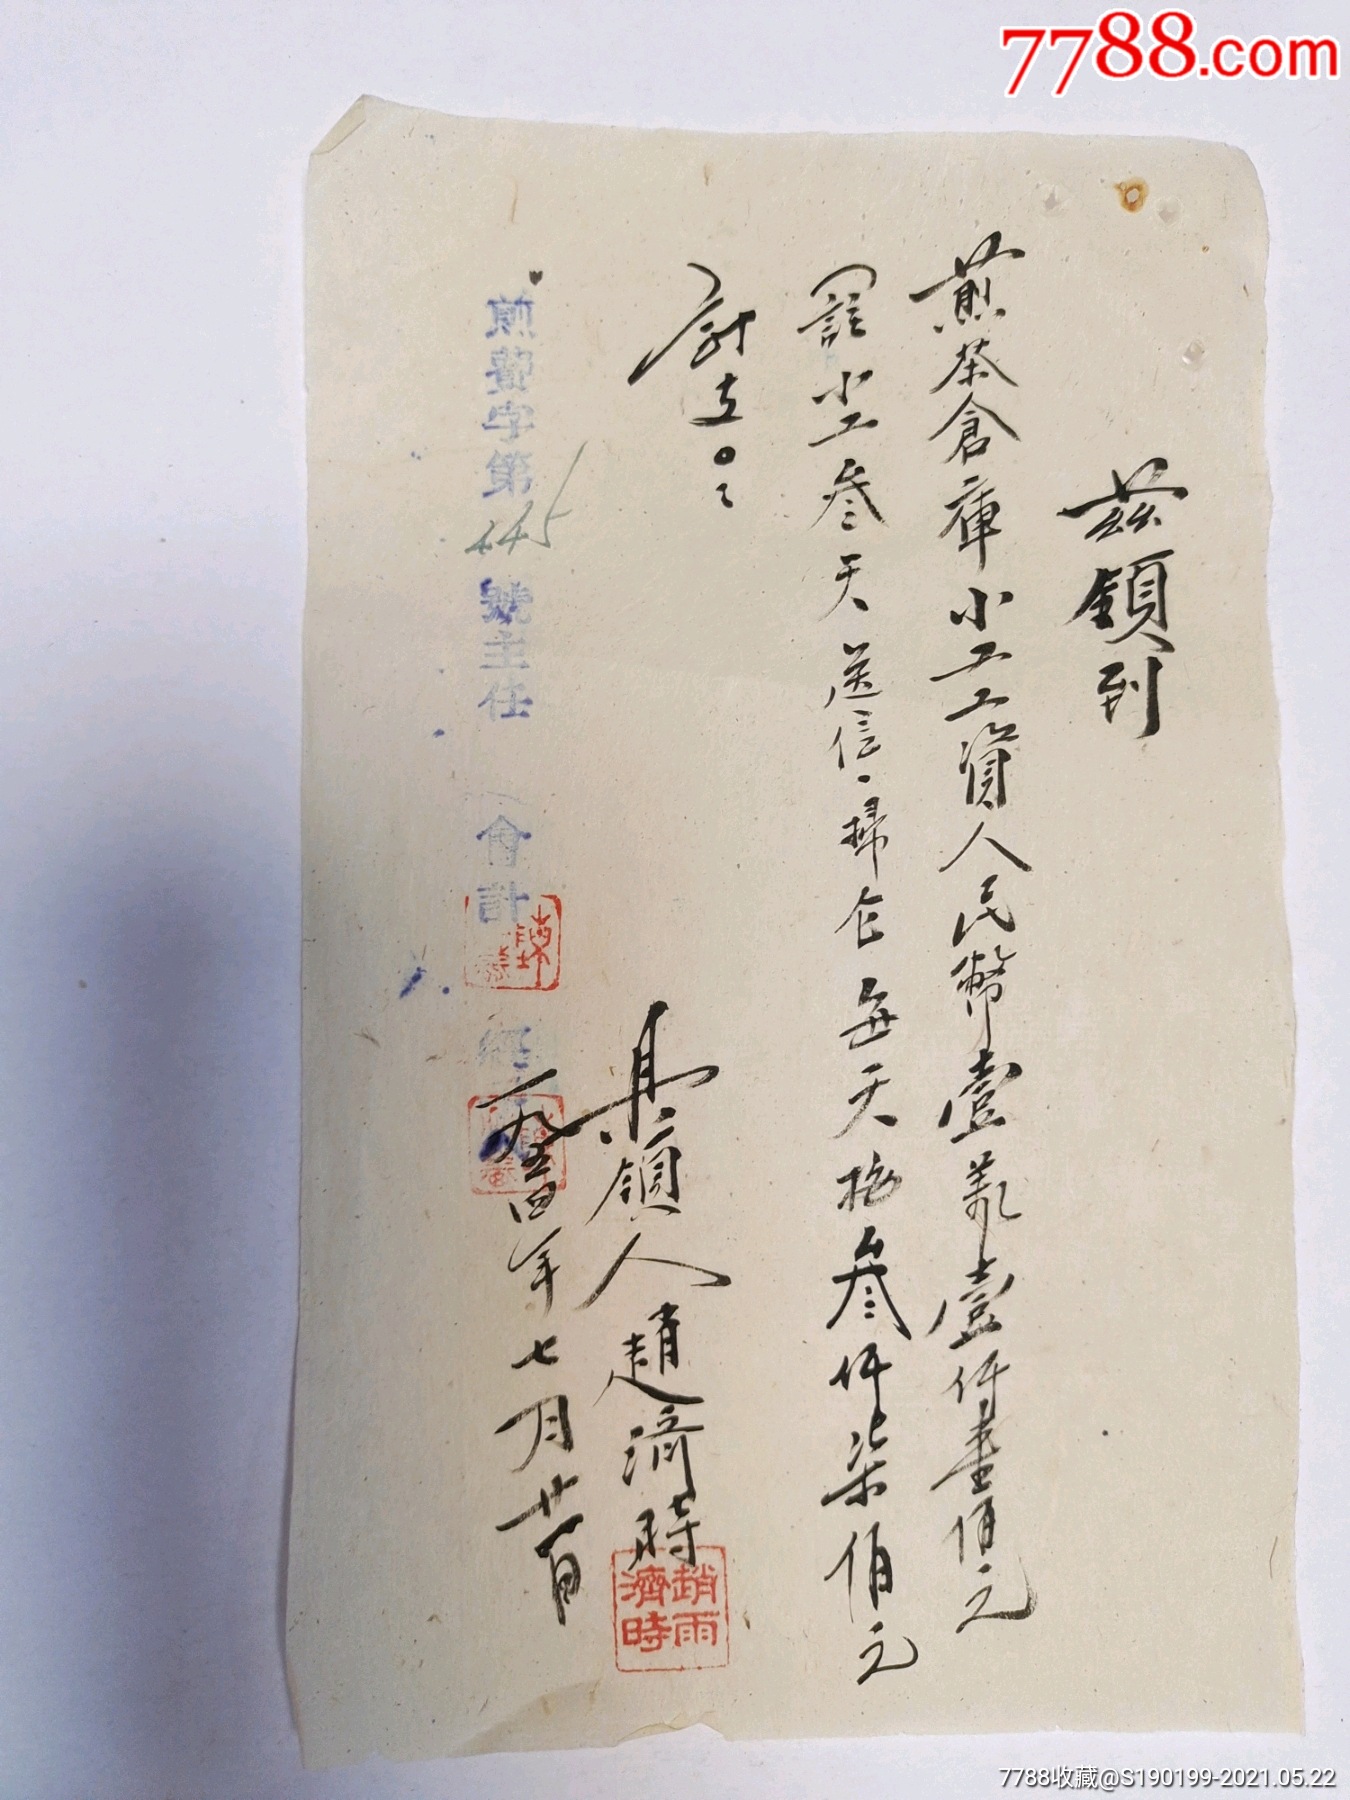 7788.com
茲領到
煎茶倉庫小工工資人民幣壹萬壹仟壹佰元
註小工叁天送信、掃仓每天按叁仟柒佰元
計支
具領人趙濟時
一九五四年七月廿日
煎費字第445號主任 會計
趙雨濟時
7788收藏@S190199-2021.05.22